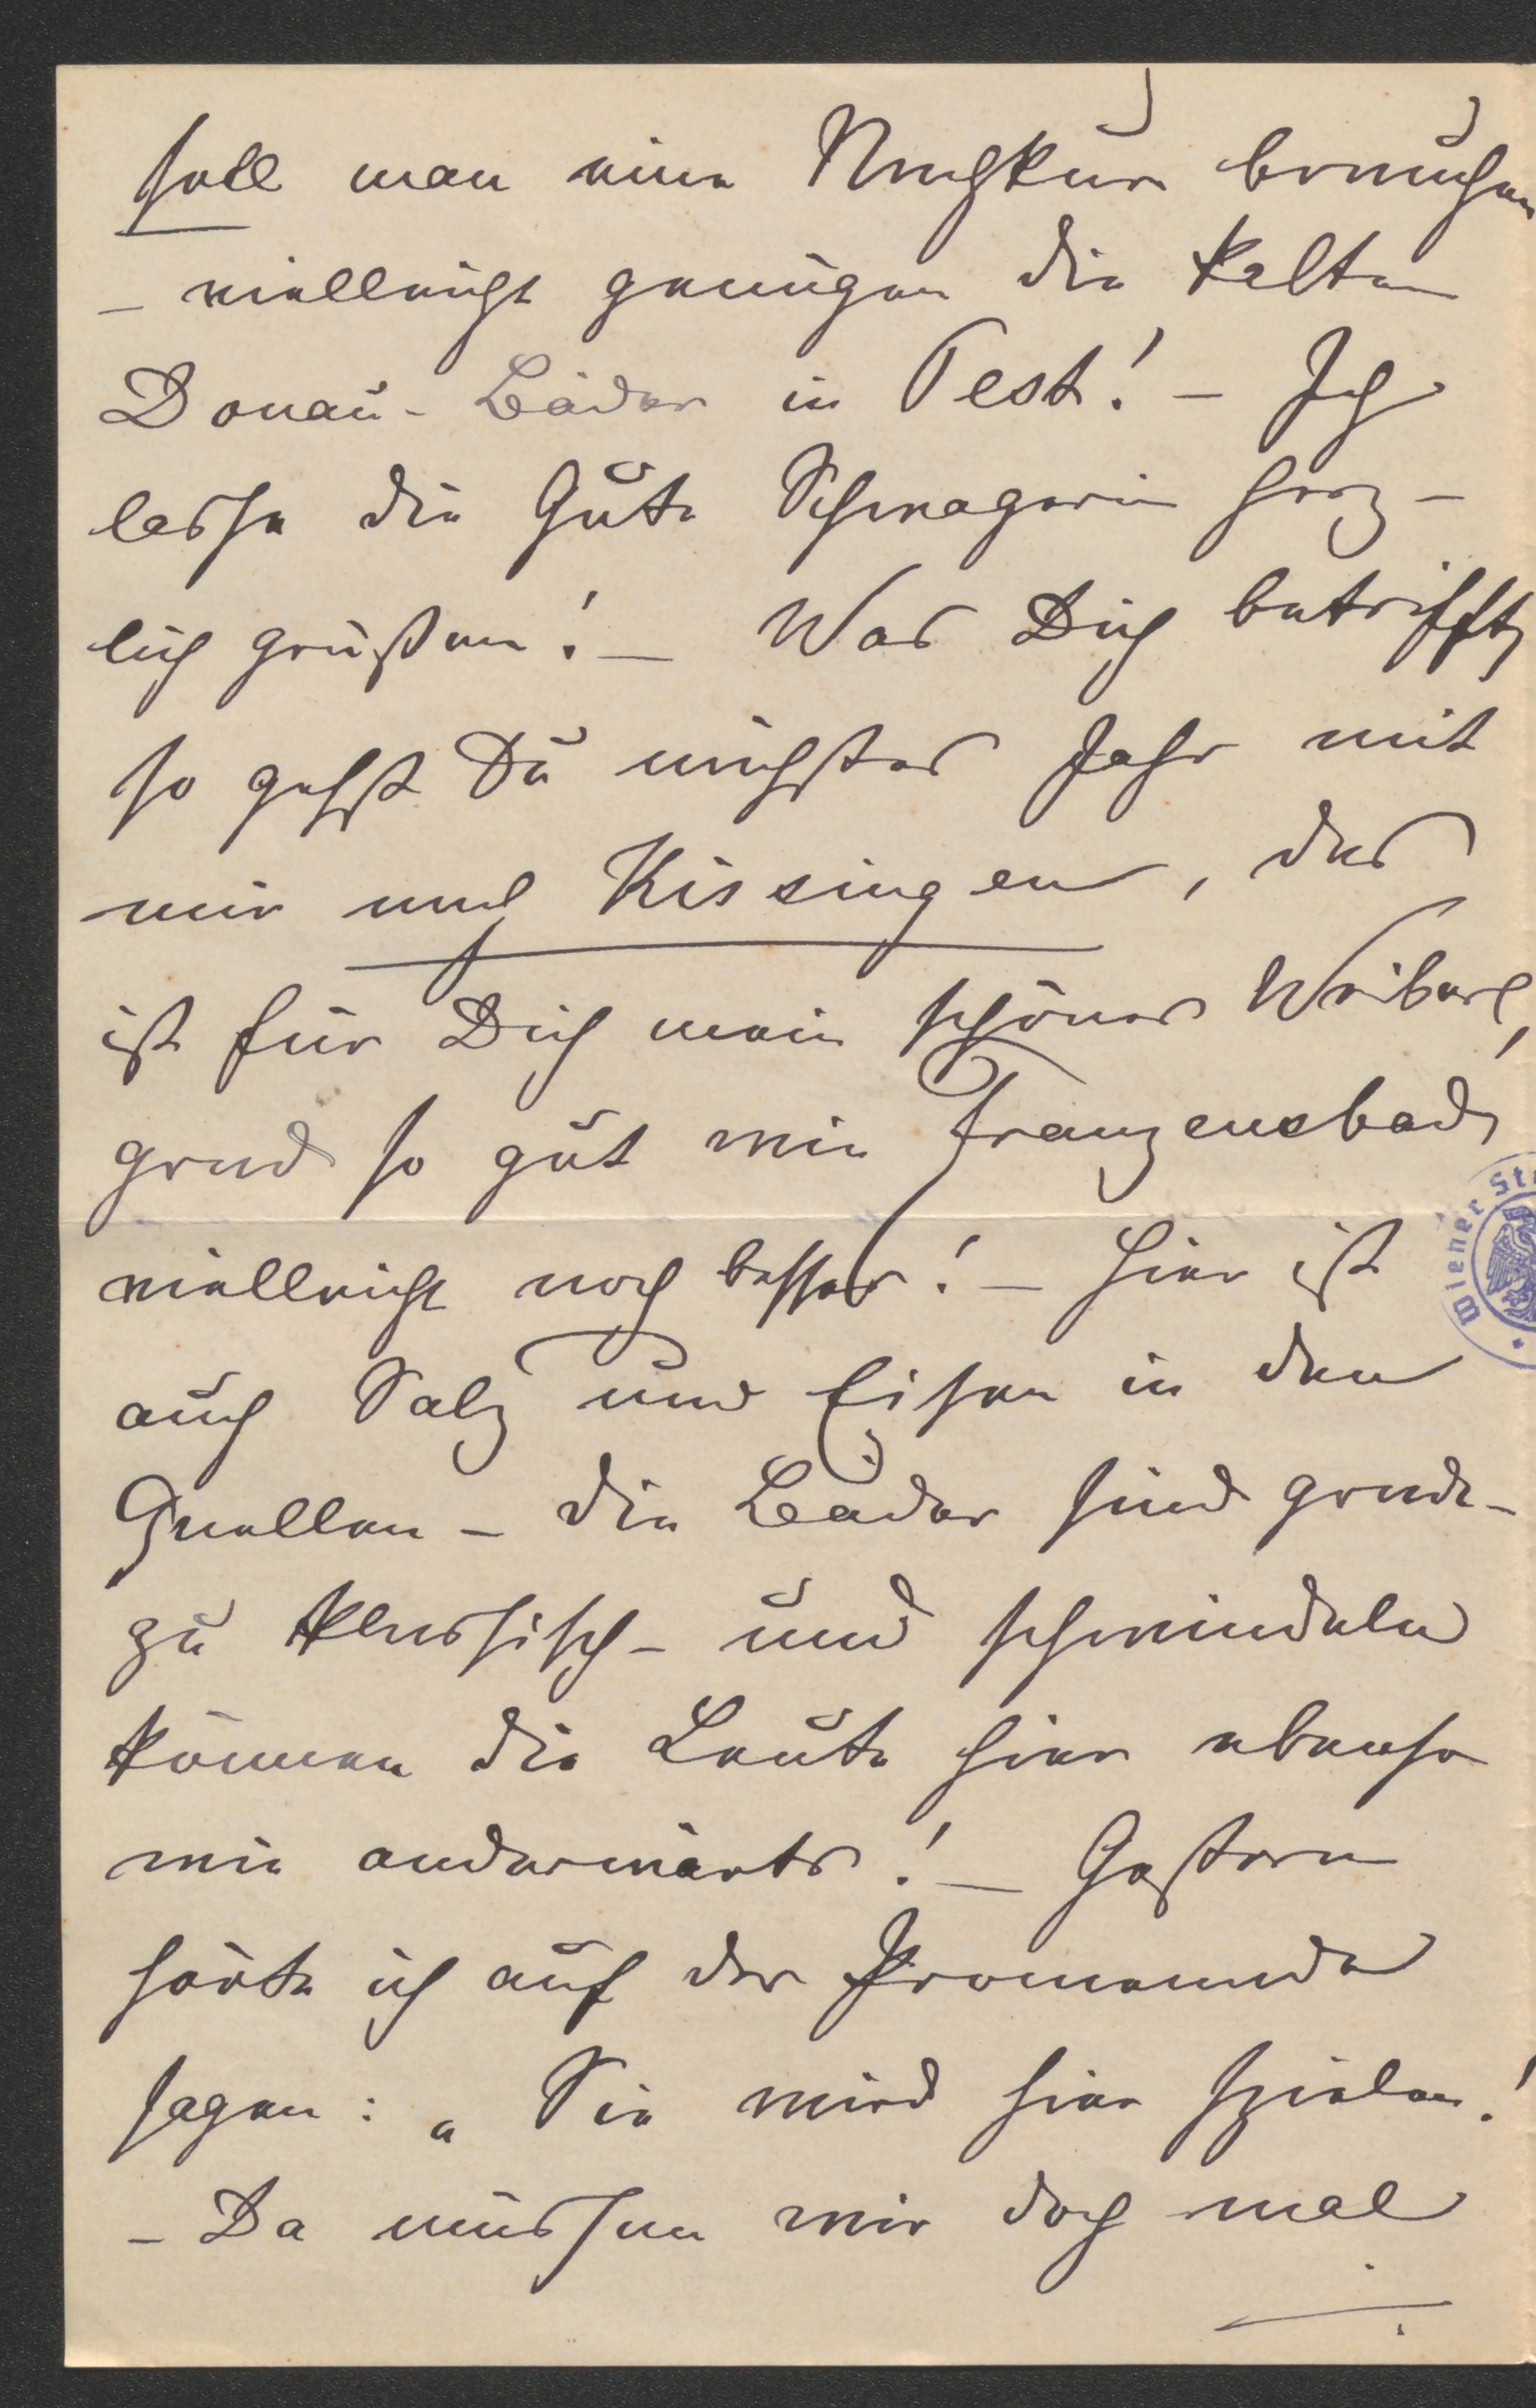 soll man eine Nachkur brauchen
– vielleicht genügen die kalten
Donau-Bäder in Pest! – Ich
lasse die Gute Schwagerin herz-
lich grüßen! – Was Dich betrifft,
so gehst Du nächstes Jahr mit
mir nach Kissingen, das
ist für Dich mein schönes Weiberl,
grad so gut wie Franzensbad,
vielleicht noch besser! – Hier ist
auch Salz und Eisen in den
Quellen – die Bäder sind grade-
zu klassisch – und schwindeln
können die Leute hier ebenso
wie anderwärts! – Gestern
hörte ich auf der Promenade
sagen: „Sie wird hier spielen!
– Da müssen wir doch mal
Wiener St